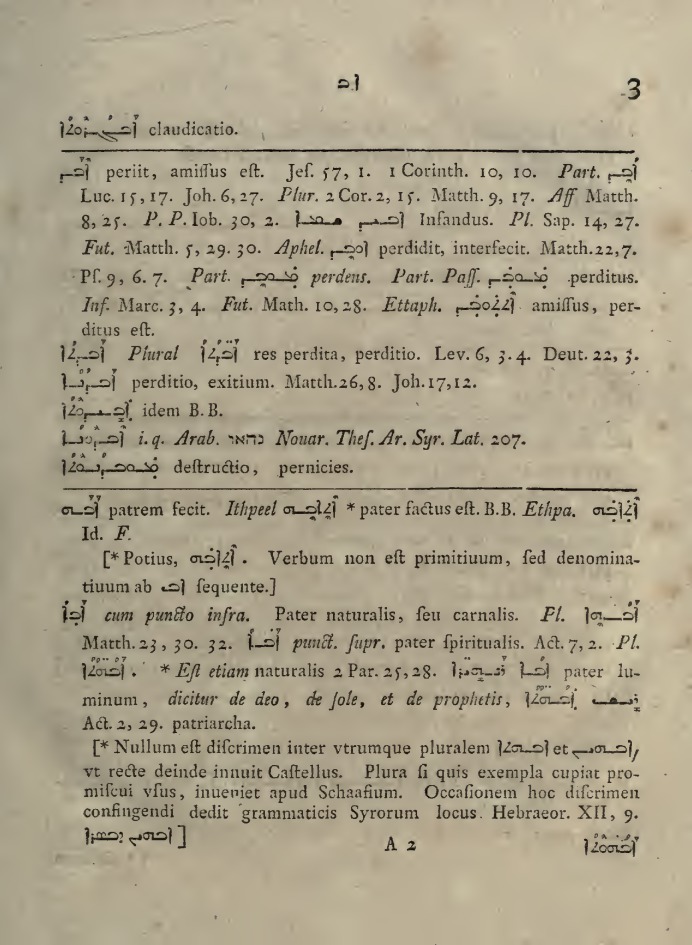 ܐܒ 3
claudicatio.
ܐܒܕ periit, amiſſus eſt. Jeſ. 57, 1. 1 Corinth. 10, 10. Part. ܐܒܕ
Luc. 15, 17. Joh. 6, 27. Plur. 2 Cor. 2, 15. Matth. 9, 17. Aff Matth.
8, 25. P. P. Iob. 30, 2. Infandus. Pl. Sap. 14, 27.
Fut. Matth. 5, 29. 30. Aphel. ܐܘܒܕ perdidit, interfecit. Matth. 22, 7.
Pſ. 9, 6. 7. Part. ܡܘܒܕ perdens. Part. Paſſ. ܡܘܒܕ perditus.
Inf. Marc. 3, 4. Fut. Math. 10, 28. Ettaph. ܐܬܬܘܒܕ amiſſus, per-
ditus eſt.
ܐܒܕܬܐ Plural ܐܒܕܬܐ res perdita, perditio. Lev. 6, 3. 4. Deut. 22, 3.
ܐܒܕܢܐ perditio, exitium. Matth. 26, 8. Joh. 17, 12.
idem B. B.
i. q. Arab. נהאר Nouar. Theſ. Ar. Syr. Lat. 207.
ܡܘܒܕܢܘܬܐ deſtructio, pernicies.
patrem fecit. Ithpeel * pater factus eſt. B.B. Ethpa.
Id. F.
[* Potius, . Verbum non eſt primitiuum, ſed denomina-
tiuum ab ܐܒ ſequente.]
ܐܒܐ cum puncto infra. Pater naturalis, ſeu carnalis. Pl. ܐܒܗܐ
Matth. 23, 30. 32. ܐܒܐ punct. ſupr. pater ſpiritualis. Act. 7, 2. Pl.
ܐܒܗܬܐ . * Eſt etiam naturalis 2 Par. 25, 28. ܐܒܐ ܕܢܗܝܪܐ pater lu-
minum, dicitur de deo, de ſole, et de prophetis, ܪܝܫ ܐܒܗܬܐ
Act. 2, 29. patriarcha.
[* Nullum eſt diſcrimen inter vtrumque pluralem ܐܒܗܬܐ et ܐܒܗܝܢ,
vt recte deinde innuit Caſtellus. Plura ſi quis exempla cupiat pro-
miſcui vſus, inueniet apud Schaafium. Occaſionem hoc diſcrimen
confingendi dedit grammaticis Syrorum locus Hebraeor. XII, 9.
ܐܒܗܝܢ ܕܒܣܪܐ ]
A 2 ܐܒܗܘܬܐ